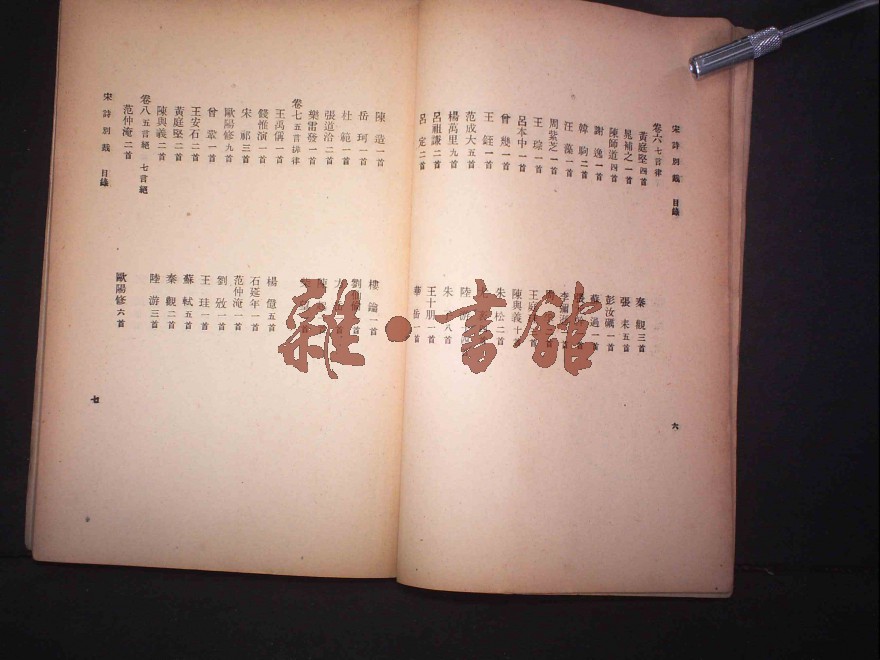 宋詩別裁 目錄
卷六 七言律
黃庭堅四首
晁補之一首
陳師道四首
謝逸一首
韓駒二首
汪藻一首
周紫芝一首
王琮一首
呂本中一首
曾幾一首
王銍一首
范成大五首
楊萬里九首
呂祖謙二首
呂定二首
秦觀三首
張耒五首
彭汝礪一首
蘇過一首
李彌遜
王庭
陳與義十
朱松二
陸游
朱 八首
王十朋一首
華岳一首
六
陳造一首
岳珂一首
杜範一首
張道洽二首
樂雷發一首
樓鑰一首
劉仙倫
卷七 五言排律
王禹偁一首
錢惟演一首
宋祁三首
歐陽修九首
曾鞏一首
王安石二首
黃庭堅二首
陳與義二首
楊億五首
石延年一首
范仲淹一首
劉攽一首
王珪一首
蘇軾五首
秦觀二首
陸游三首
卷八 五言絕 七言絕
范仲淹二首
歐陽修六首
宋詩別裁 目錄
七
雜·書館